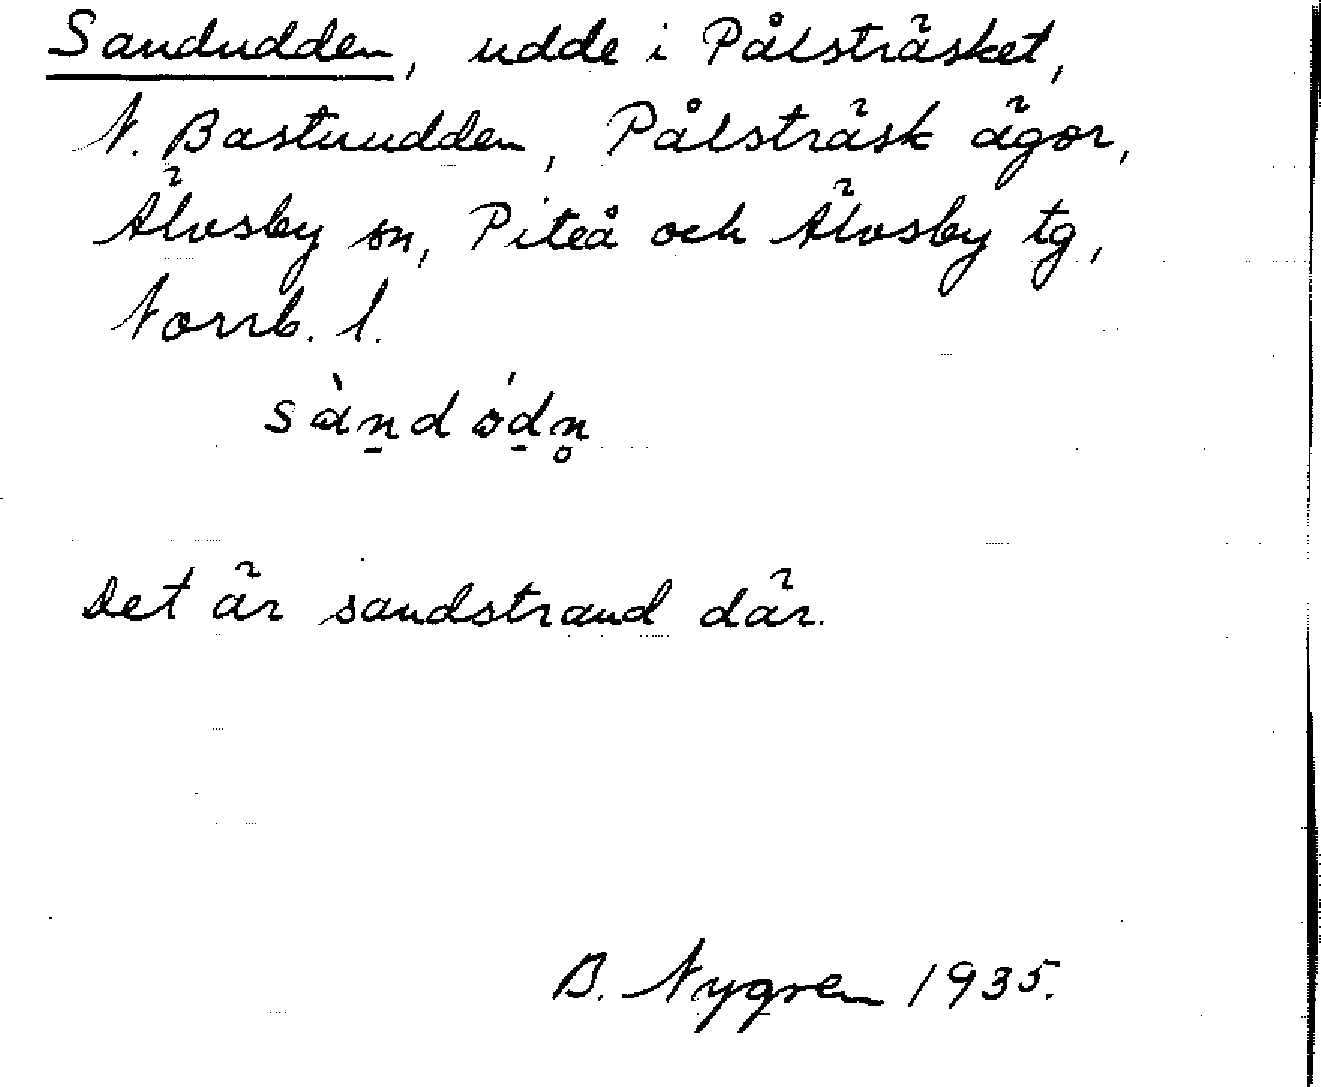 Sandudden, udde i Pålsträsket,
N. Bastuudden, Pålsträsk ägor,
Älvsby sn, Piteå och Älvsby tg,
Norrb. l.
sàn̠dód̠n̥
Det är sandstrand där.
B. Nygren 1935.